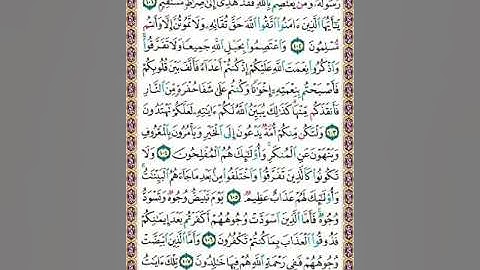 رَسُولُهُۥ وَمَن يَعْتَصِم بِٱللَّهِ فَقَدْ هُدِىَ إِلَىٰ صِرَٰطٍ مُّسْتَقِيمٍ ١٠١
يَٰٓأَيُّهَا ٱلَّذِينَ ءَامَنُوا۟ ٱتَّقُوا۟ ٱللَّهَ حَقَّ تُقَاتِهِۦ وَلَا تَمُوتُنَّ إِلَّا وَأَنتُم
مُّسْلِمُونَ ١٠٢ وَٱعْتَصِمُوا۟ بِحَبْلِ ٱللَّهِ جَمِيعًا وَلَا تَفَرَّقُوا۟
وَٱذْكُرُوا۟ نِعْمَتَ ٱللَّهِ عَلَيْكُمْ إِذْ كُنتُمْ أَعْدَآءً فَأَلَّفَ بَيْنَ قُلُوبِكُمْ
فَأَصْبَحْتُم بِنِعْمَتِهِۦٓ إِخْوَٰنًا وَكُنتُمْ عَلَىٰ شَفَا حُفْرَةٍ مِّنَ ٱلنَّارِ
فَأَنقَذَكُم مِّنْهَا كَذَٰلِكَ يُبَيِّنُ ٱللَّهُ لَكُمْ ءَايَٰتِهِۦ لَعَلَّكُمْ تَهْتَدُونَ
١٠٣ وَلْتَكُن مِّنكُمْ أُمَّةٌ يَدْعُونَ إِلَى ٱلْخَيْرِ وَيَأْمُرُونَ بِٱلْمَعْرُوفِ
وَيَنْهَوْنَ عَنِ ٱلْمُنكَرِ وَأُو۟لَٰٓئِكَ هُمُ ٱلْمُفْلِحُونَ ١٠٤ وَلَا
تَكُونُوا۟ كَٱلَّذِينَ تَفَرَّقُوا۟ وَٱخْتَلَفُوا۟ مِنۢ بَعْدِ مَا جَآءَهُمُ ٱلْبَيِّنَٰتُ
وَأُو۟لَٰٓئِكَ لَهُمْ عَذَابٌ عَظِيمٌ ١٠٥ يَوْمَ تَبْيَضُّ وُجُوهٌ وَتَسْوَدُّ
وُجُوهٌ فَأَمَّا ٱلَّذِينَ ٱسْوَدَّتْ وُجُوهُهُمْ أَكَفَرْتُم بَعْدَ إِيمَٰنِكُمْ
فَذُوقُوا۟ ٱلْعَذَابَ بِمَا كُنتُمْ تَكْفُرُونَ ١٠٦ وَأَمَّا ٱلَّذِينَ ٱبْيَضَّتْ
وُجُوهُهُمْ فَفِى رَحْمَةِ ٱللَّهِ هُمْ فِيهَا خَٰلِدُونَ ١٠٧ تِلْكَ ءَايَٰتُ